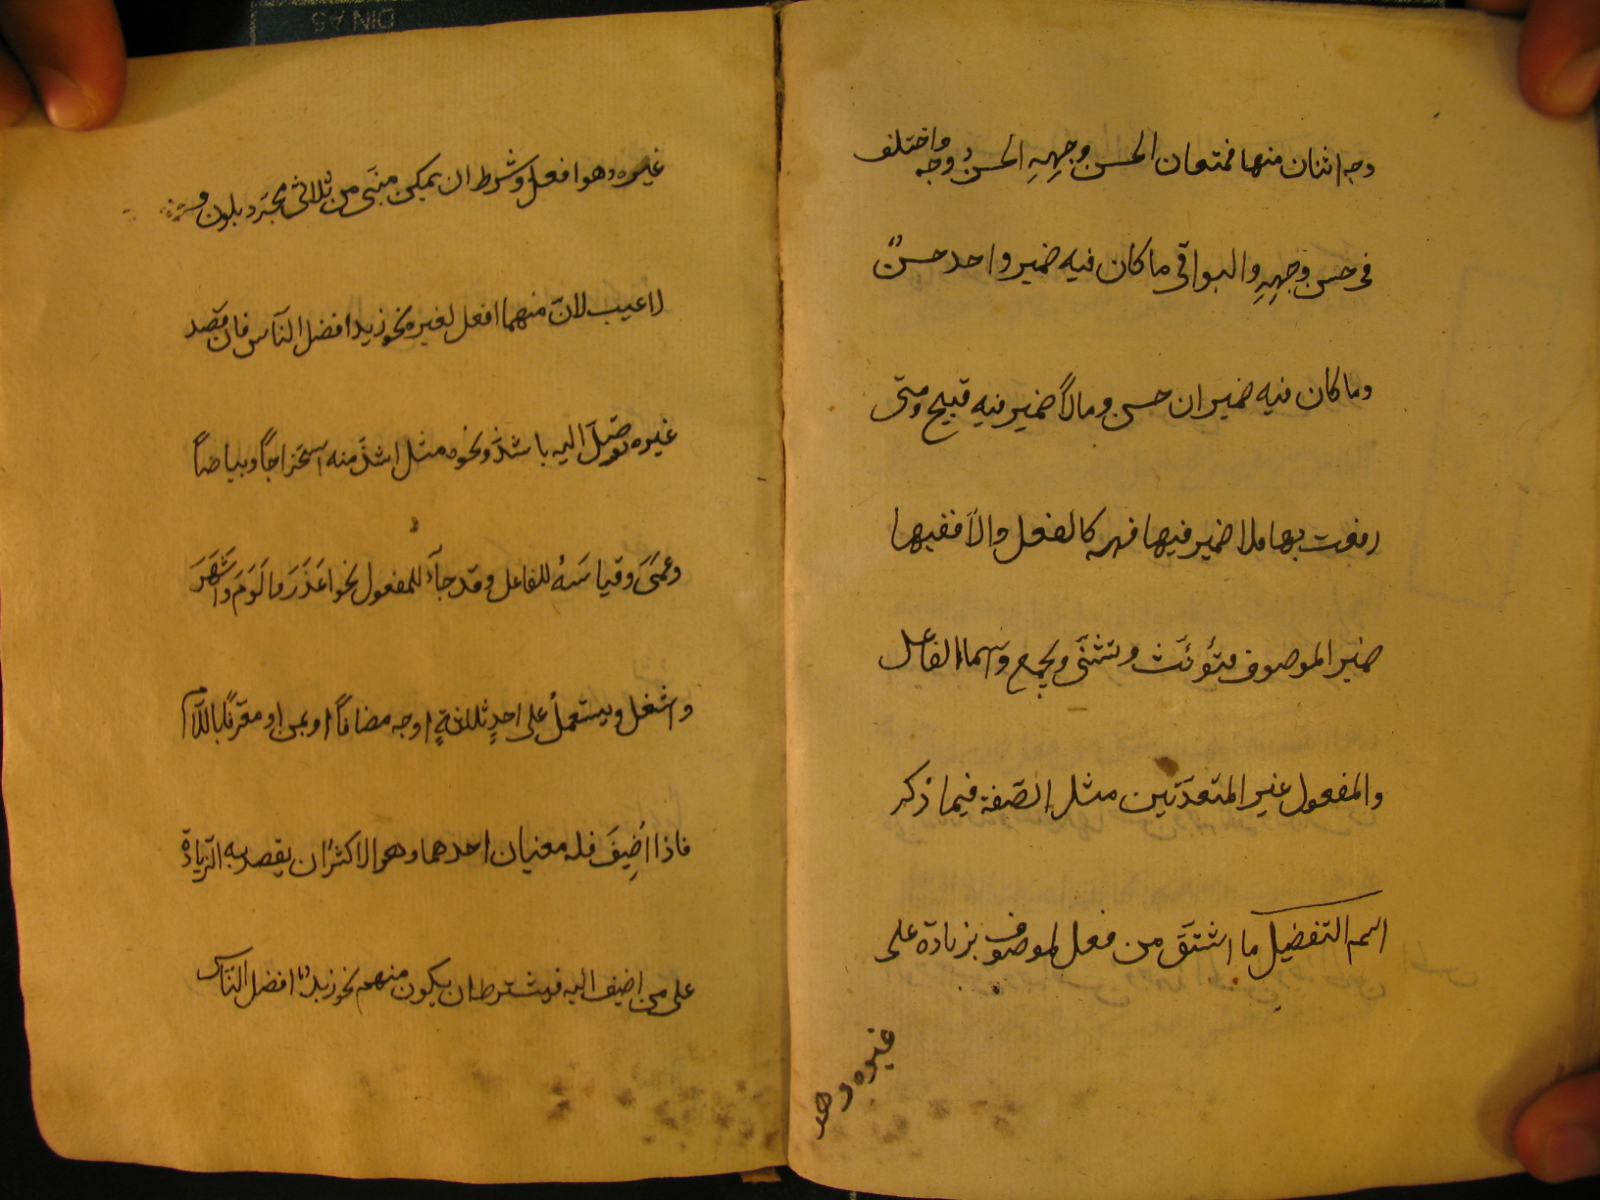 وجه اثنان منها ممتعان الحسن وجهِهِ الحسنُ وجه واختلف
فى حسن وجهِهِ والبواقى ما كان فيه ضمير واحد حسنٌ
وما كان فيه ضميران حسن ومالاً ضمير فيه قبيح ومتى
رفعت بها ملا ضمير فيها فهى كالفعل والاّ ففيها
ضمير الموصوف فتؤنث وتثنّى ويجمع واسما الفاعل
والمفعول غير المتعدّيين مثل الصّفة فيما ذكر
اسم التفضيل ما اشتقّ من فعل لموصوف بزيادة على
غيره وهو
غيره وهو افعل وشرط ان يمكن مبنَى من ثلاثى مجرّد بلون و
لا عيب لانّ منهما افعل لغيره نحو زيد افضل النّاس فان قصد
غيره توصّل اليه باشدّ ونحوه مثل اشدّ منه استخراجاً وبياضاً
وعمىَ وقياسهُ للفاعل وقد جآء للمفعول نحو اعذَرَ والَوَمَ واشهَرَ
واشغل ويستعملُ على احدٍ ثلثةٍ اوجه مضافاً او بمن او معرّفًا باللّام
فاذا اُضِيفَ فله معنيان احدهما وهو الاكثر ان يقصد به الزّيادة
على من اضيف اليه فيشترط ان يكون منهم نحو زيدٌ افضل النّاس
DIN A5